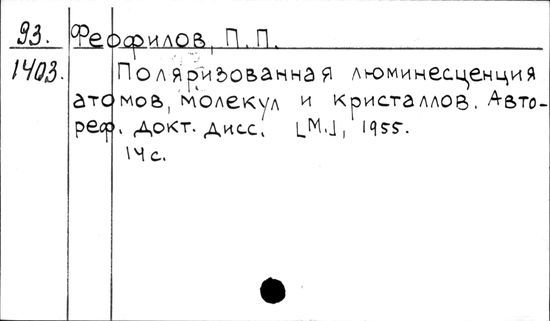 93. Феофилов, П.П.
1403. Поляризованная люминесценция
атомов, молекул и кристаллов. Авто-
реф. докт. дисс. [М.], 1955.
14 с.